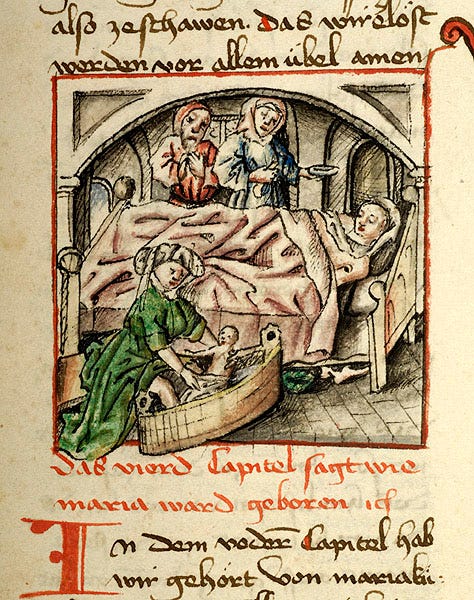 also zeschawen. Das wir erlöst
werden vor allem übel amen
Das vierd Capitel sagt wie
maria ward geboren ich
In dem vodern Capitel hab
wir gehört von maria